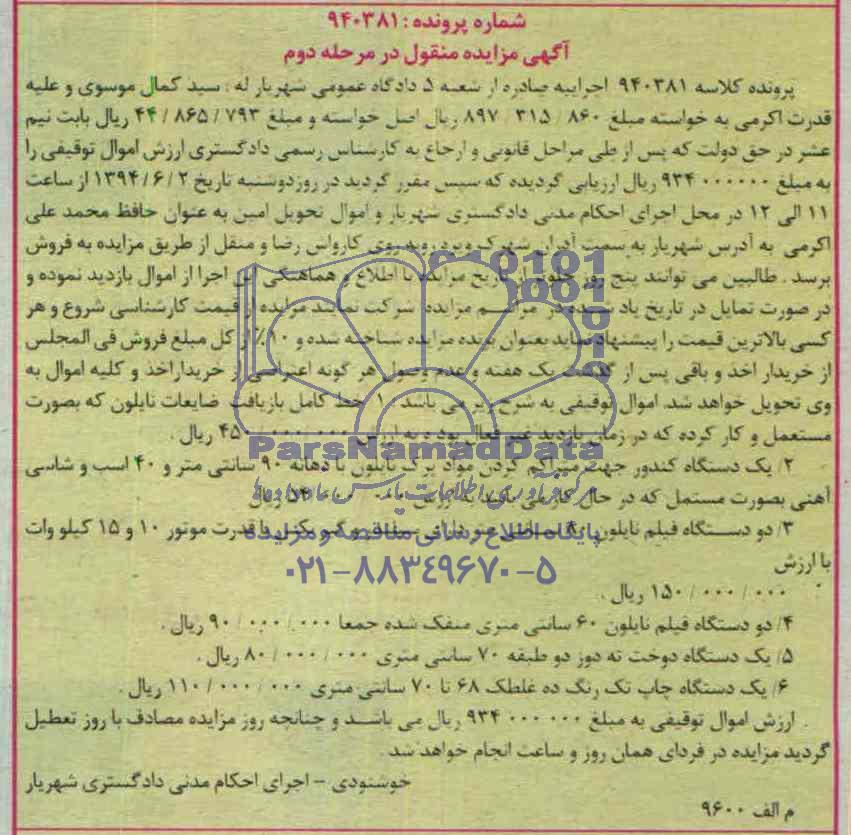 شماره پرونده : ۹۴۰۳۸۱
آگهی مزایده منقول در مرحله دوم
پرونده کلاسه ۹۴۰۳۸۱ اجراییه صادره از شعبه ۵ دادگاه عمومی شهریار له : سید کمال موسوی و علیه
قدرت اکرمی به خواسته مبلغ ۸۶۰ / ۳۱۵ / ۸۹۷ ریال اصل خواسته و مبلغ ۷۹۳ / ۸۶۵ / ۴۴ ریال بابت نیم
عشر در حق دولت که پس از طی مراحل قانونی و ارجاع به کارشناس رسمی دادگستری ارزش اموال توقیفی را
به مبلغ ۹۳۴۰۰۰۰۰۰ ریال ارزیابی گردیده که سپس مقرر گردید در روزدوشنبه تاریخ ۱۳۹۴/۶/۲ از ساعت
۱۱ الی ۱۲ در محل اجرای احکام مدنی دادگستری شهریار و اموال تحویل امین به عنوان حافظ محمد علی
اکرمی به آدرس شهریار به سمت آدران شهرک ویره روبه روی کارواس رضا و منقل از طریق مزایده به فروش
برسد . طالبین می توانند پنج روز جلوتر از تاریخ مزایده با اطلاع و هماهنگی این اجرا از اموال بازدید نموده و
در صورت تمایل در تاریخ یاد شده در مراسم مزایده شرکت نمایند مزایده از قیمت کارشناسی شروع و هر
کسی بالاترین قیمت را پیشنهاد نماید بعنوان برنده مزایده شناخته شده و ۱۰٪ از کل مبلغ فروش فی المجلس
از خریدار اخذ و باقی پس از گذشت یک هفته و عدم وصول هر گونه اعتراضی از خریداراخذ و کلیه اموال به
وی تحویل خواهد شد. اموال توقیفی به شرح زیر می باشد ۱. خط کامل بازیافت ضایعات نایلون که بصورت
مستعمل و کار کرده که در زمان بازدید غیر فعال بوده به ارزش ۴۵۰/۰۰۰/۰۰۰ ریال .
۲/ یک دستگاه کندور جهت متراکم کردن مواد پرک نایلون با دهانه ۹۰ سانتی متر و ۴۰ اسب و شاسی
آهنی بصورت مستمل که در حال کار می باشد به ارزش ریال
۳/ دو دستگاه فیلم نایلون ۸۰ سانتی متر قدرت موتور ۱۰ و ۱۵ کیلو وات
با ارزش
۱۵۰ / ۰۰۰ / ۰۰۰ ریال .
۴/ دو دستگاه فیلم نایلون ۶۰ سانتی متری منفک شده جمعا ۹۰/۰۰۰/۰۰۰ ریال .
۵/ یک دستگاه دوخت ته دوز دو طبقه ۷۰ سانتی متری ۸۰/۰۰۰/۰۰۰ ریال .
۶/ یک دستگاه چاپ تک رنگ ده غلطک ۶۸ تا ۷۰ سانتی متری ۱۱۰/۰۰۰/۰۰۰ ریال .
. ارزش اموال توقیفی به مبلغ ۹۳۴۰۰۰۰۰۰ ریال می باشد و چنانچه روز مزایده مصادف با روز تعطیل
گردید مزایده در فردای همان روز و ساعت انجام خواهد شد .
خوشنودی - اجرای احکام مدنی دادگستری شهریار
م الف ۹۶۰۰
ParsNamadData
پایگاه اطلاع رسانی مناقصه و مزایده
۰۲۱-۸۸۳۴۹۶۷۰-۵